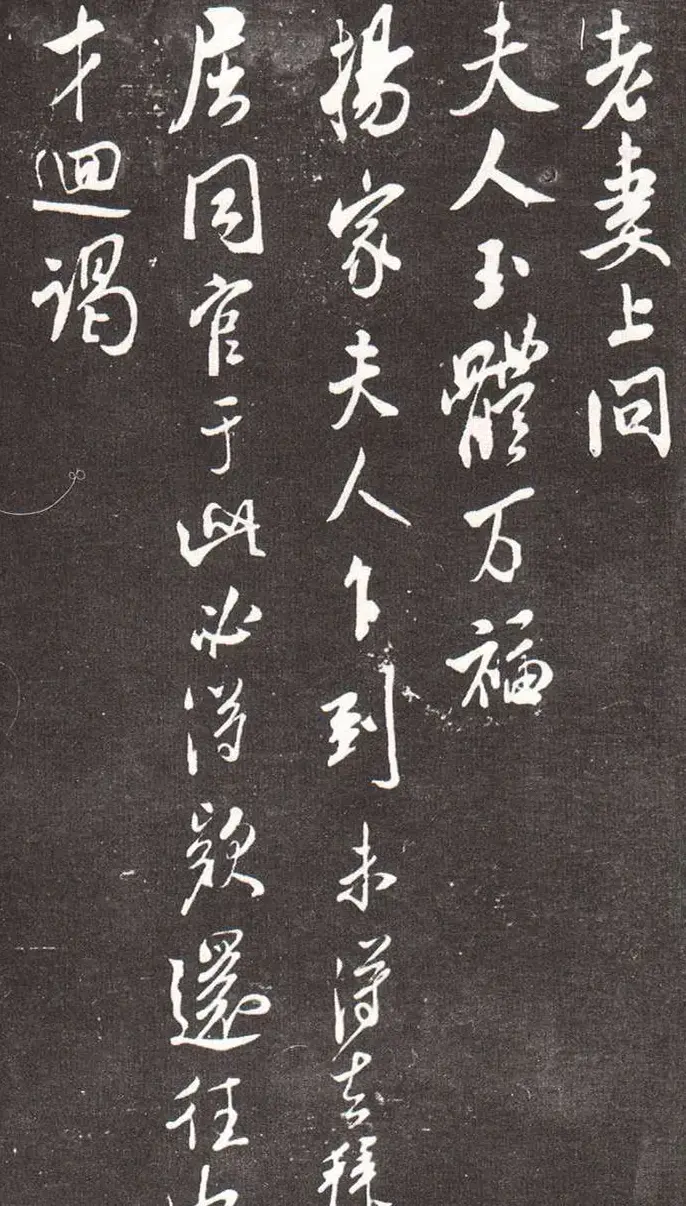 老妻上問
夫人玉體万福
揚家夫人乍到未得去拜
居同官于此必得款還往
才迴謁